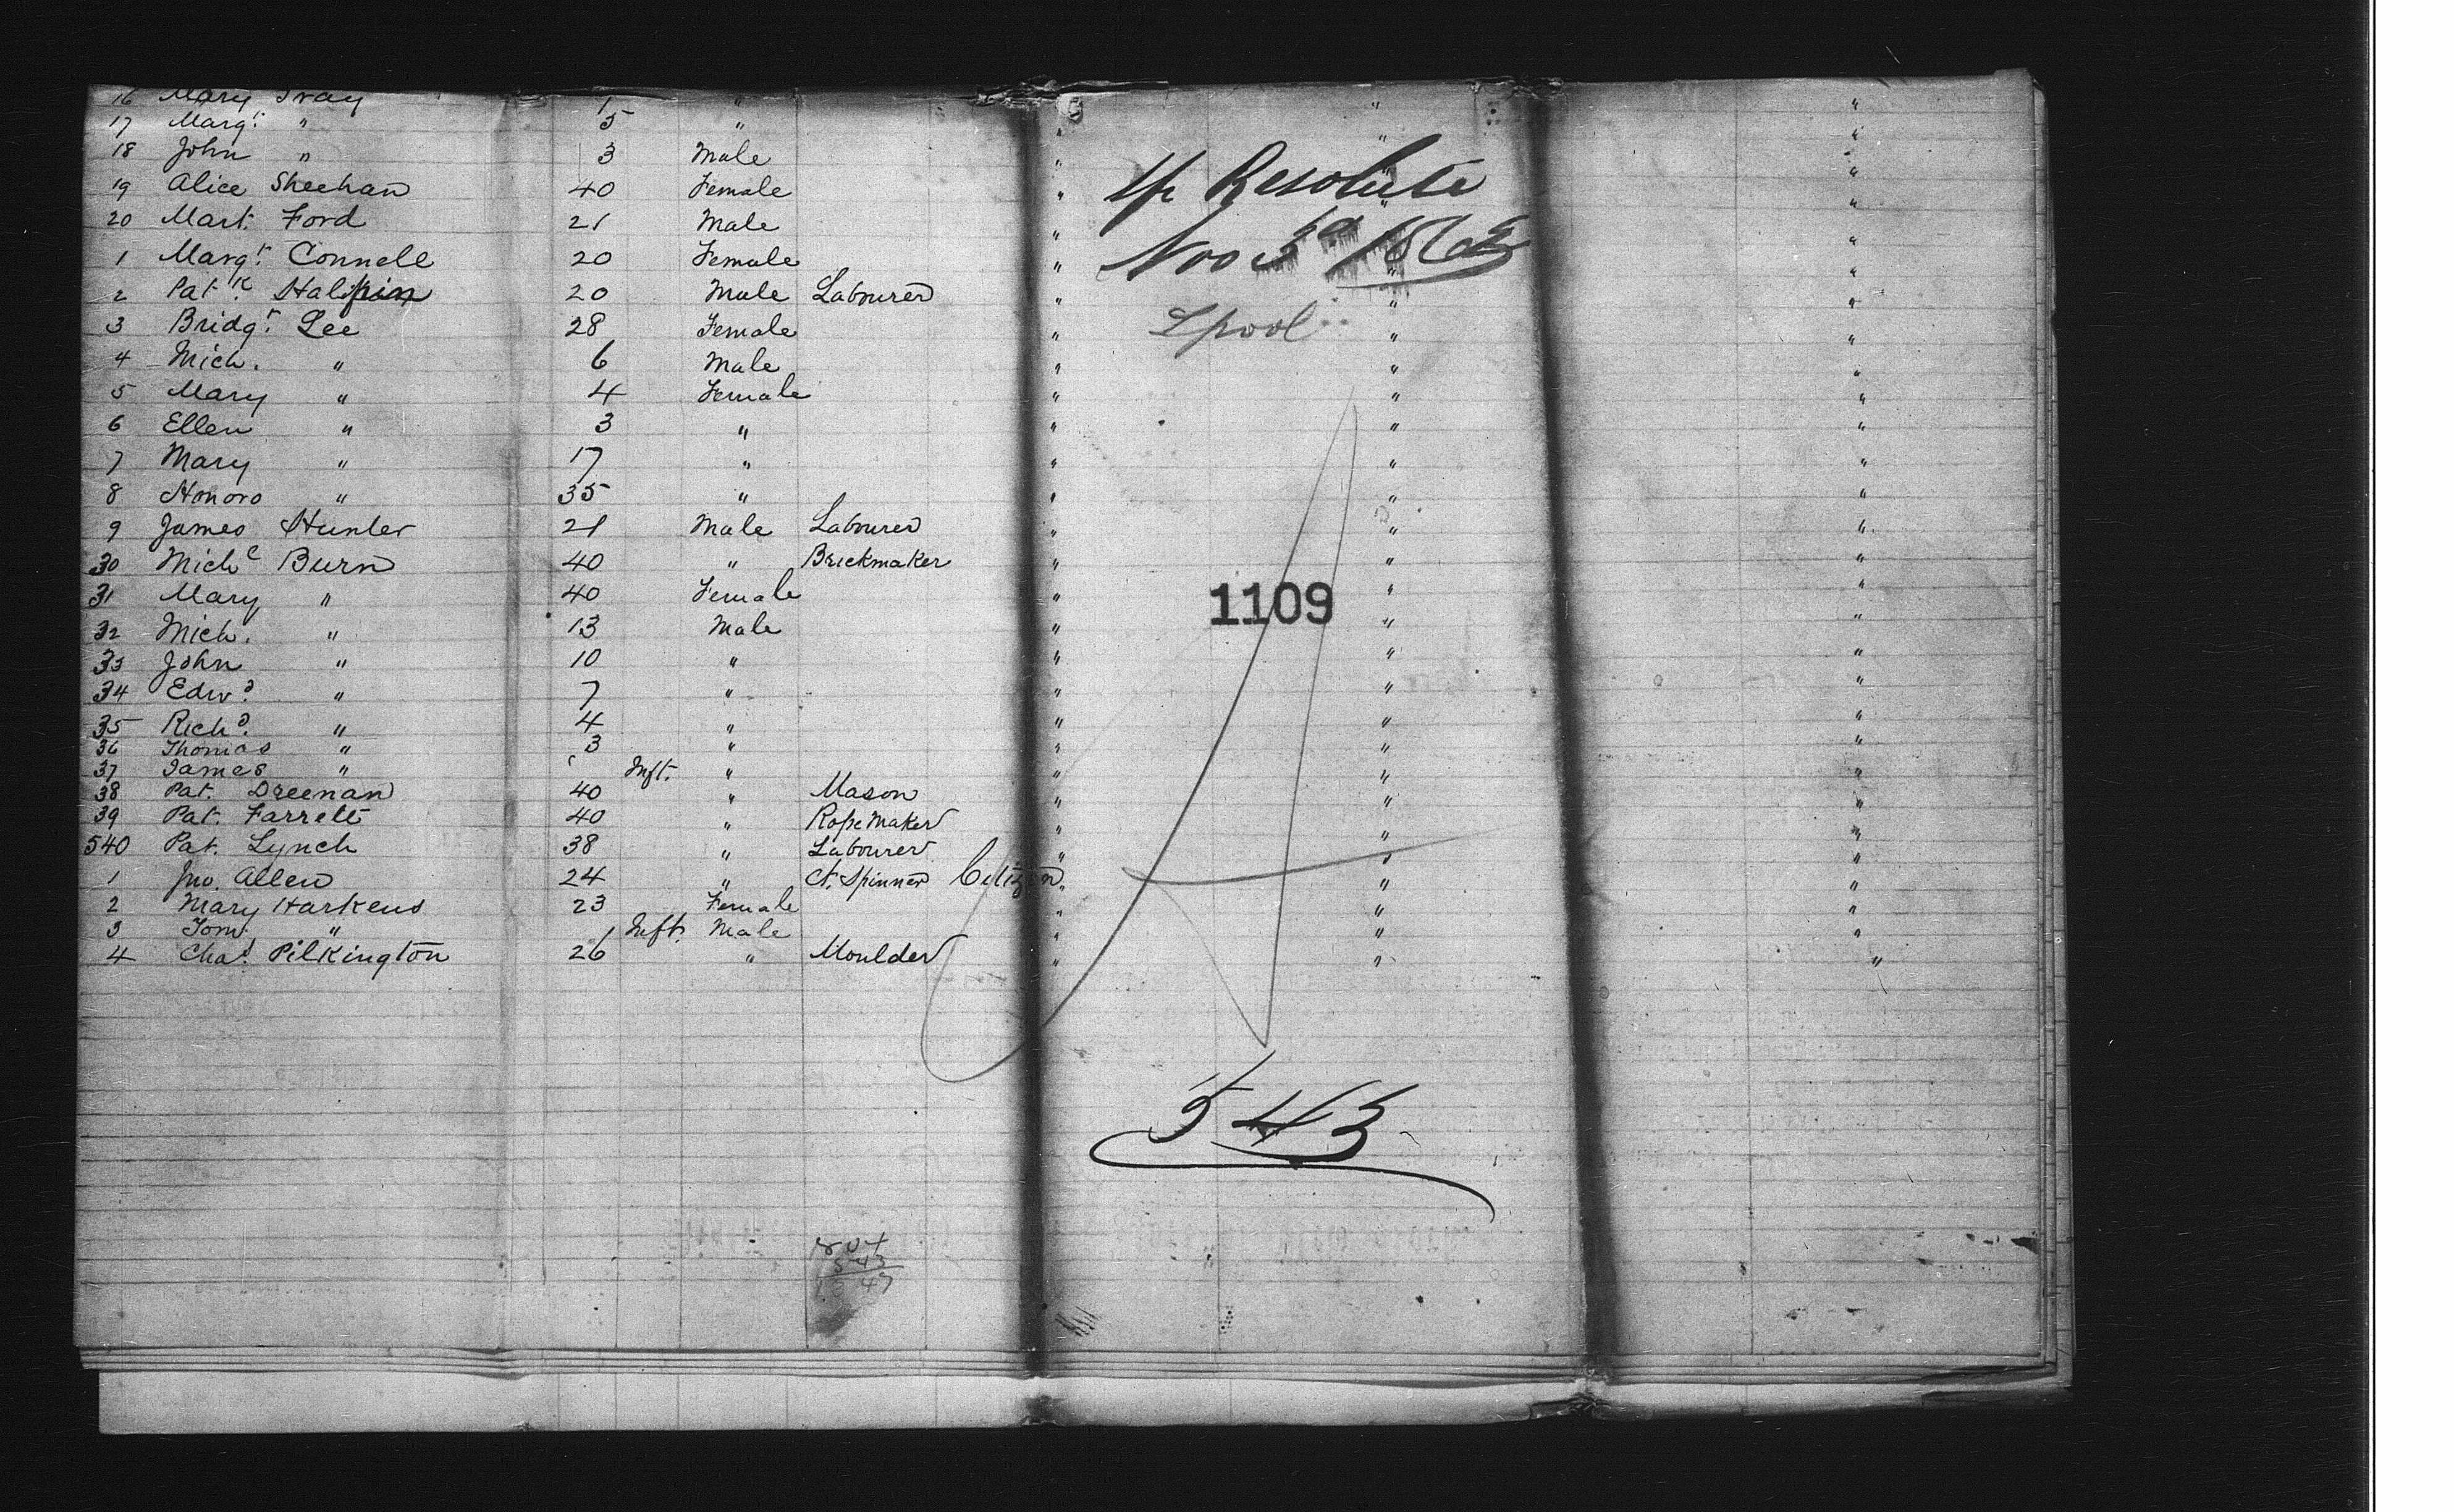 16 Mary "
17 Margt. " 5 " " " "
18 John " 3 Male " " "
19 Alice Sheehan 40 Female " " "
20 Mart. Ford 21 Male " " "
1 Margt. Connell 20 Female " " "
2 Patk. Halpin 20 Male Labourer " " "
3 Bridgt. Lee 28 Female " " "
4 Mich. " 6 Male " " "
5 Mary " 4 Female " " "
6 Ellen " 3 " " " "
7 Mary " 17 " " " "
8 Honora " 35 " " " "
9 James Hunter 21 Male Labourer " " "
30 Michl Burn 40 " Brickmaker " " "
31 Mary " 40 Female " " "
32 Mich. " 13 Male " " "
33 John " 10 " " " "
34 Edwd. " 7 " " " "
35 Richd. " 4 " " " "
36 Thomas " 3 " " " "
37 James " Inft. " " " "
38 Pat. Dreenan 40 " Mason " " "
39 Pat. Farrell 40 " Rope Maker " " "
540 Pat. Lynch 38 " Labourer " " "
1 Jno. Allen 24 " Ct. Spinner Citizen " " "
2 Mary Harkens 23 Female " " "
3 Tom " Inft. Male " " "
4 Chas. Pilkington 26 " Moulder " " "
Sp Resolute
Nov 3d
Lpool
1109
543
804
543
1347